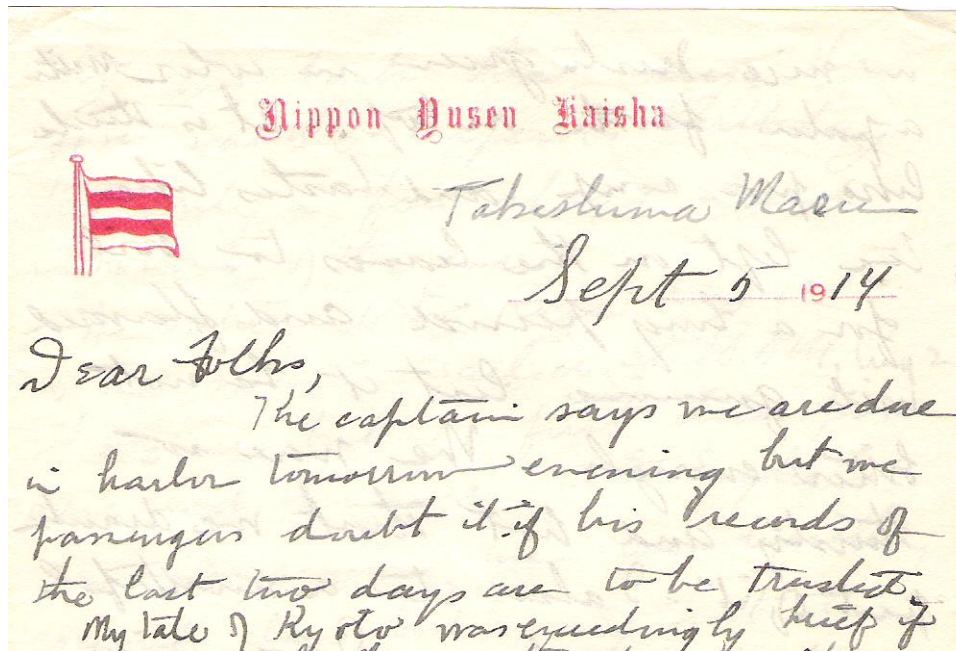 Nippon Yusen Kaisha
Takeshima Maru
Sept 5 1914
Dear Folks,
The captain says we are due
in harbor tomorrow evening but we
passengers doubt it if his records of
the last two days are to be trusted.
My tale of Kyoto was exceedingly brief if